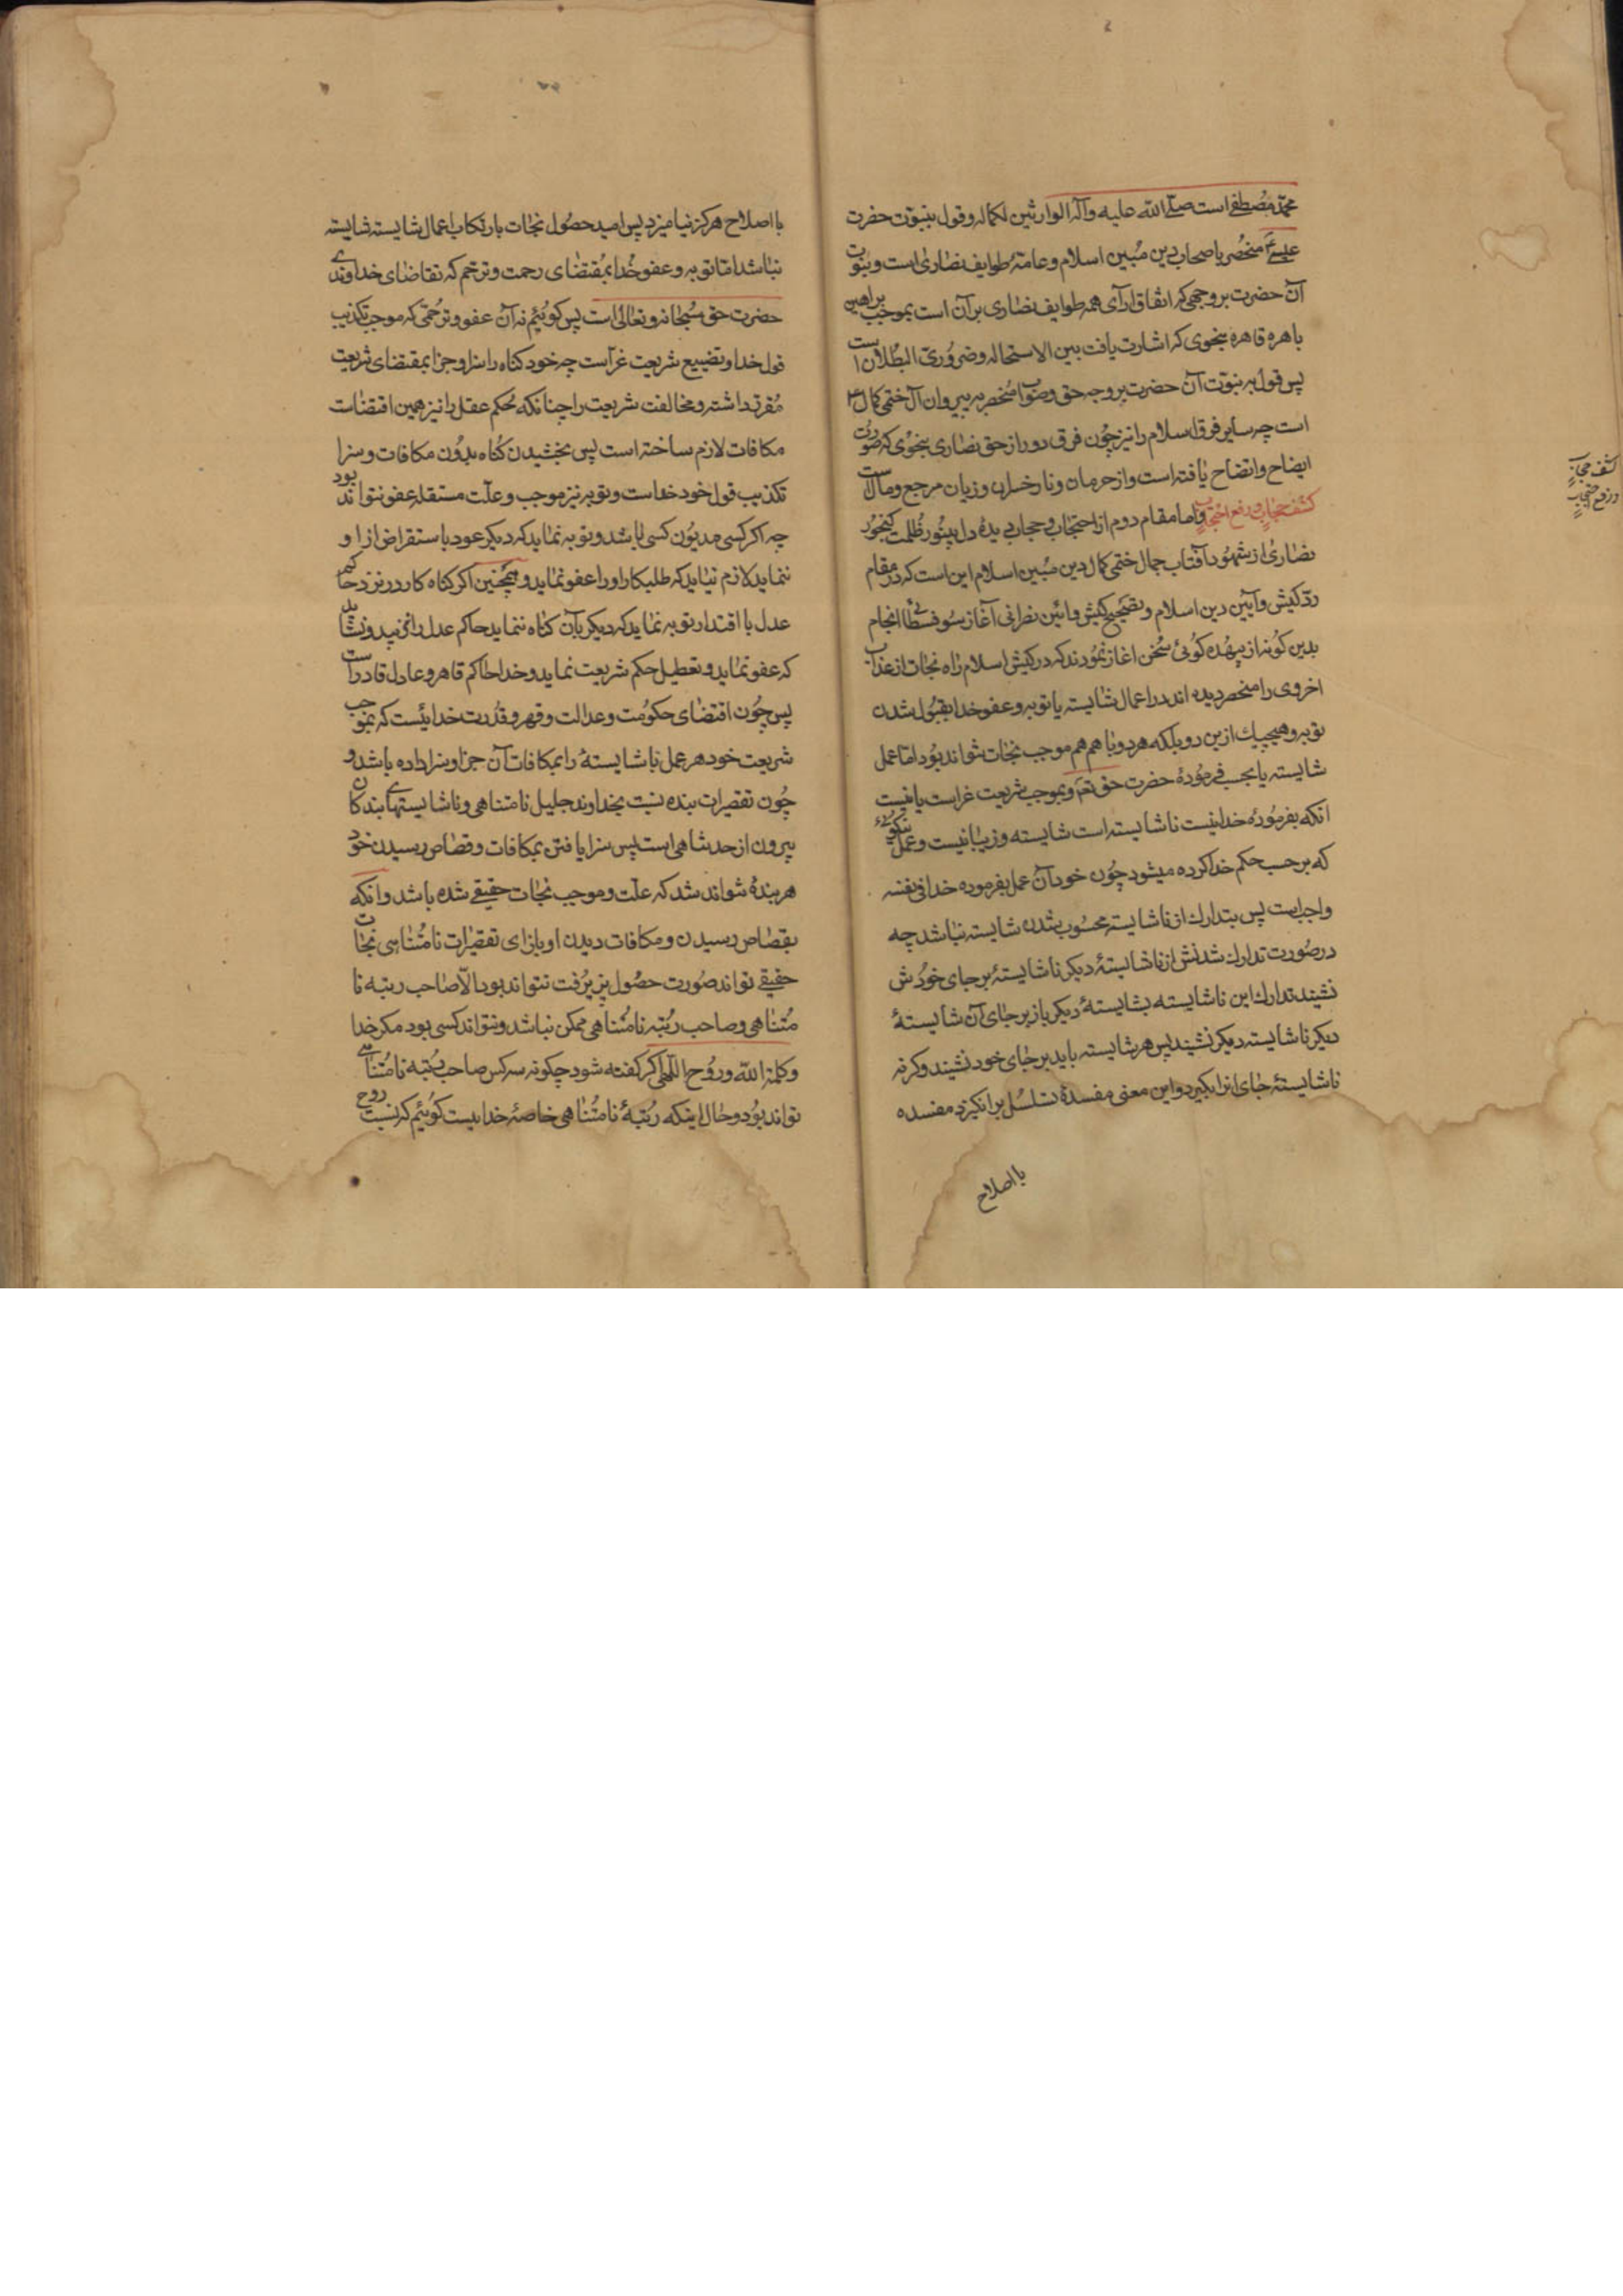 محمد مصطفی است صلی الله علیه و آله الوارثین لکماله و قول بنبوت حضرت
عیسی ع منحصر باصحاب دین مبین اسلام و عامهٔ طوایف نصاری است و نبوت
آن حضرت بر وجهی که اتفاق آرای همه طوایف نصاری بر آن است بموجب براهین
باهره قاهره بنحوی که اشارت یافت بین الاستحاله و ضروری البطلان است
پس قول به نبوت آن حضرت بر وجه حق و صواب منحصر به پیروان آن ختمی کمال
است چه سایر فرق اسلام را نیز چون فرق دور از حق نصاری بنحوی که صورت
ایضاح و اتضاح یافته است و از حرمان و نار خسران و زیان مرجع و مآل است
کشف حجاب و رفع احتجاب و اما مقام دوم از احتجاب و حجاب دیدهٔ دل بینور ظلمت کنجور
نصاری از شهود آفتاب جمال ختمی کمال دین مبین اسلام این است که در مقام
رد کیش و آیین دین اسلام و تصحیح کیش و آئین نصرانی آغاز سوفسطائی انجام
بدین کونه از بیهده کوئی سخن اغاز نمودند که در کیش اسلام راه نجات از عذاب
اخروی را منحصر دیده اند در اعمال شایسته یا توبه و عفو خدا بقبول شدن
توبه و هیچیک ازین دو بلکه هر دو با هم هم موجب نجات نتواند بود اما عمل
شایسته یا بحسب فرمودهٔ حضرت حق تعم و بموجب شریعت غراست یا نیست
انکه بفرمودهٔ خدا نیست ناشایسته است شایسته و زیبا نیست و عمل نیکوئی
که بر حسب حکم خدا کرده میشود چون خود آن عمل بفرموده خدا فی نفسه
واجب است پس بتدارک از ناشایسته محسوب شدن شایسته نباشد چه
در صورت تدارک شدنش از ناشایستهٔ دیکر ناشایستهٔ بر جای خودش
نشیند تدارک این ناشایسته بشایستهٔ دیکر باز بر جای آن شایستهٔ
دیکر ناشایسته دیکر نشیند پس هر شایسته باید بر جای خود نشیند و کرنه
ناشایستهٔ جای انرا بکیرد و این معنی مفسدهٔ تسلسل بر انکیزد مفسده
با اصلاح
کشف حجاب
و رفع احتجاب
با اصلاح هرکز نیامیزد پس امید حصول نجات بارتکاب اعمال شایسته شایسته
نباشد اما توبه و عفو خدا بمقتضای رحمت و ترحم که تقاضای خداوندی
حضرت حق سبحانه و تعالی است پس کوئیم نه آن عفو و ترحمی که موجب تکذیب
قول خدا و تضییع شریعت غرآست چه خود کناه را سزا و جزا بمقتضای شریعت
مقرر داشته و مخالفت شریعت را چنانکه بحکم عقل را نیز همین اقتضاست
مکافات لازم ساخته است پس بخشیدن کناه بدون مکافات و سزا
تکذیب قول خود خداست و توبه نیز موجب و علت مستقله عفو نتواند بود
چه اکر کسی مدیون کسی باشد و توبه نماید که دیکر عود باستقراض از او
ننماید لازم نیاید که طلبکار او را عفو نماید و همچنین اکر کناه کار در نزد حاکم
عدل با اقتدار توبه نماید که دیکر بآن کناه ننماید حاکم عدل را نمیرسد و نشاید
که عفو نماید و تعطیل حکم شریعت نماید و خدا حاکم قاهر و عادل قادر است
پس چون اقتضای حکومت و عدالت و قهر و قدرت خدائیست که بموجب
شریعت خود هر عمل ناشایستهٔ را بمکافات آن جزا و سزا داده باشد و
چون تقصیرات بنده نسبت بخداوند جلیل نامتناهی و ناشایستهای بندکان
بیرون از حد تناهی است پس سزا یافتن بمکافات و قصاص رسیدن خود
هر بندهٔ نتواند شد که علت و موجب نجات حقیقی شده باشد و انکه
بقصاص رسیدن و مکافات دیدن او بازای تقصیرات نامتناهی نجات
حقیقی تواند صورت حصول پذیرفت نتواند بود الا صاحب رتبه نا
متناهی و صاحب رتبه نامتناهی ممکن نباشد و نتواند کسی بود مکر خدا
و کلمة الله و روح اللهی اکر کفته شود چکونه سه کس صاحب رتبه نامتناهی
تواند بود و حال اینکه رتبهٔ نامتناهی خاصهٔ خداست کوئیم که نسبت روح